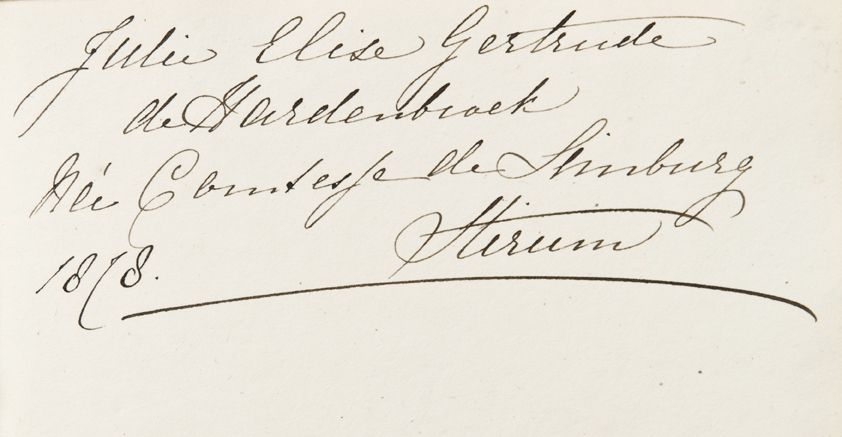 Julie Elise Gertrude
de Hardenbroek
Née Comtesse de Limburg
Stirum
1878.